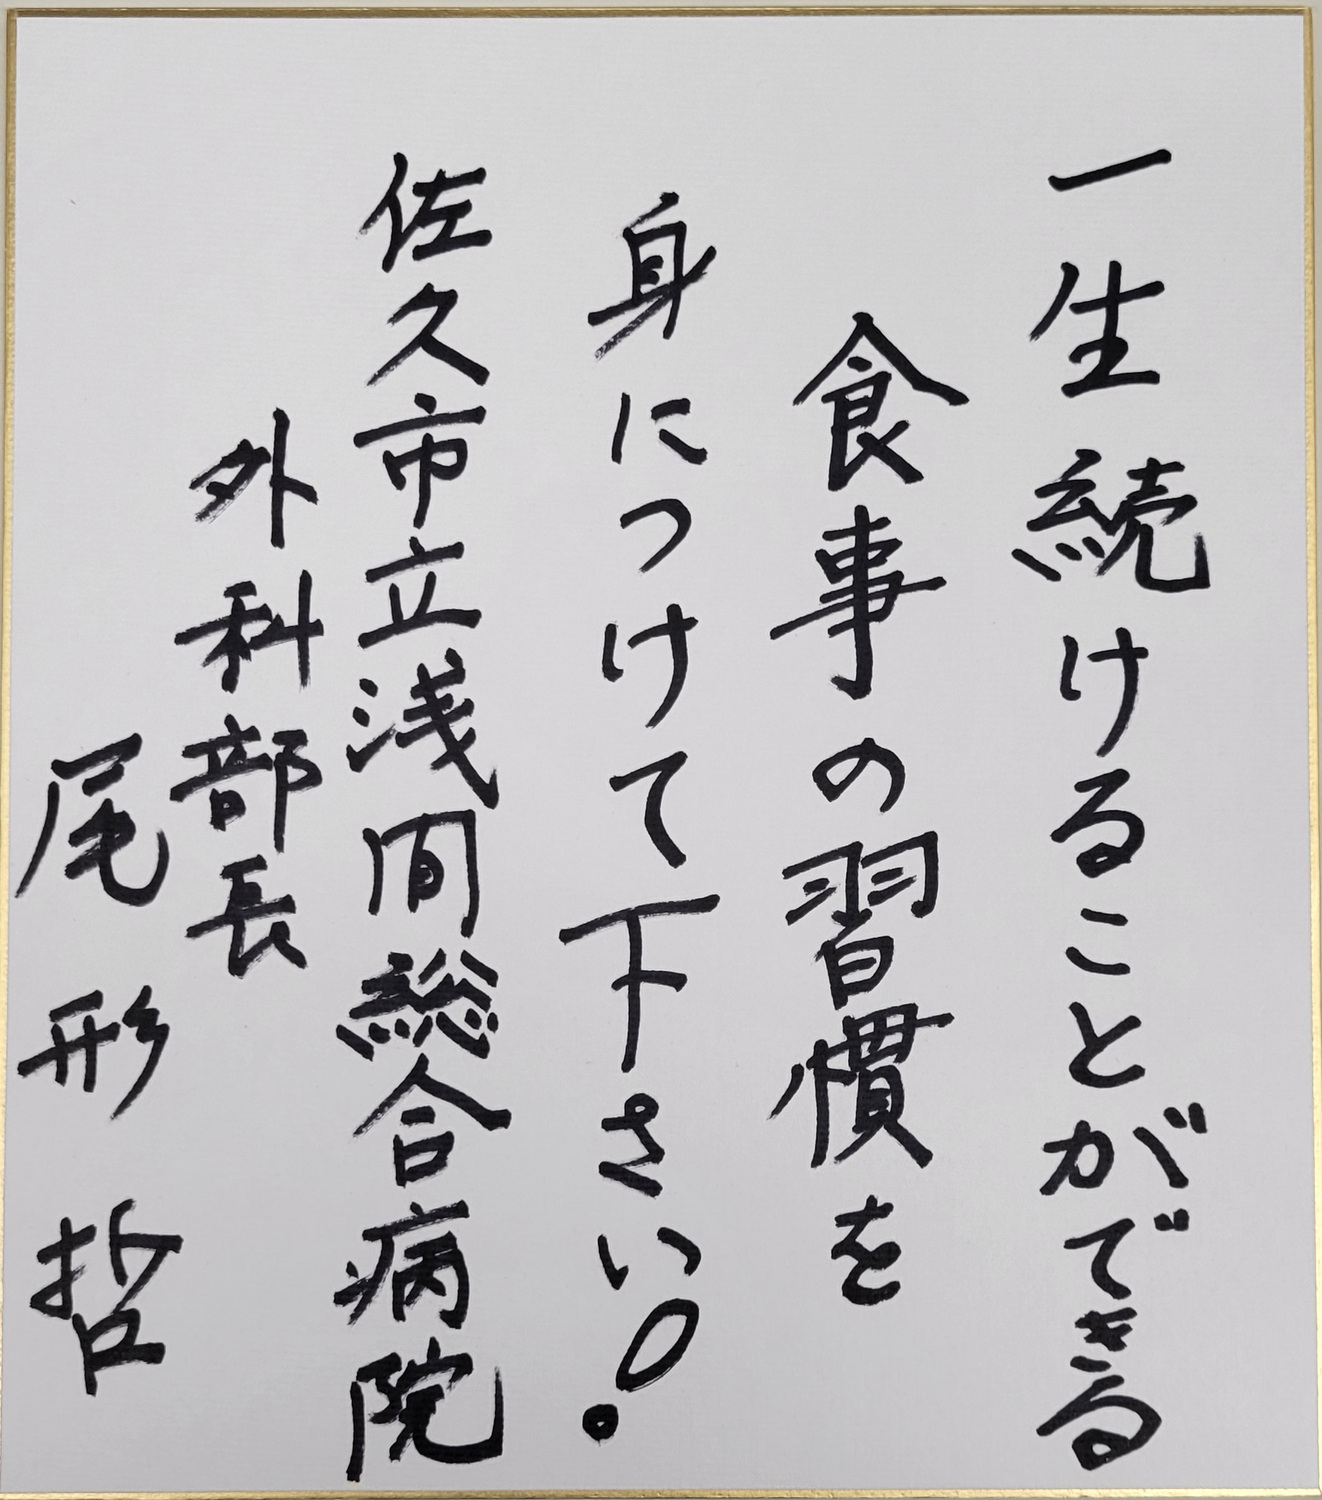 一生続けることができる
食事の習慣を
身につけて下さい!
佐久市立浅間総合病院
外科部長
尾形 哲